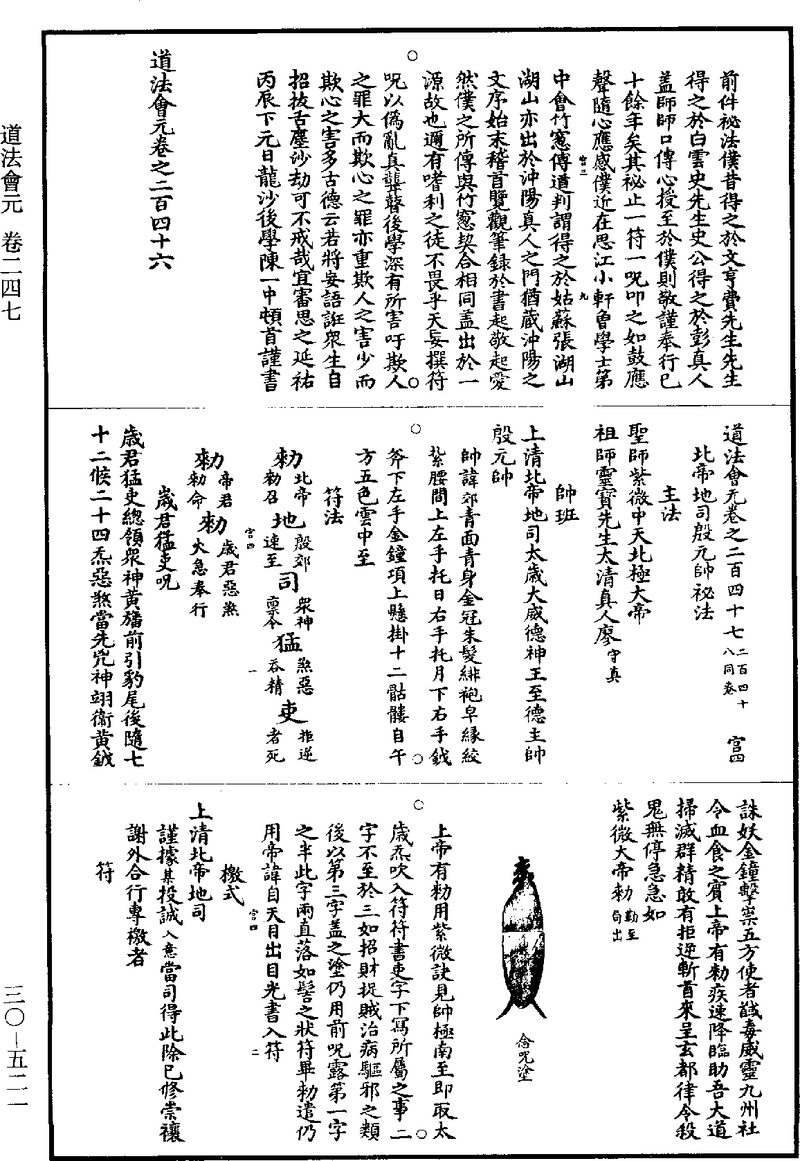 道法會元　卷二四七
三〇－五二一
前件祕法僕昔得之於文亨費先生先生
得之於白雲史先生史公得之於彭真人
蓋師師口傳心授至於僕則敬謹奉行已
十餘年矣其祕止一符一呪叩之如鼓應
聲隨心應感僕近在思江小軒魯學士第
中會竹窓傅道判謂得之於姑蘇張湖山
宫三
九
湖山亦出於沖陽真人之門猶蔵沖陽之
文序始末稽首覽觀筆録於書起敬起愛
然僕之所傳與竹窓契合相同蓋出於一
源故也邇有嗜利之徒不畏乎天妄撰符
呪以偽亂真聾瞽後學深有所害吁欺人
之罪大而欺心之罪亦重欺人之害少而
欺心之害多古德云若將妄語誑衆生自
招拔舌塵沙劫可不戒哉宜審思之延祐
丙辰下元日龍沙後學陳一中頓首謹書
道法會元卷之二百四十六
道法會元卷之二百四十七 二百四十八同卷 宫四
北帝地司殷元帥祕法
主法
聖師紫微中天北極大帝
祖師靈寶先生太清真人廖守真
帥班
上清北帝地司太歲大威德神王至德主帥
殷元帥
帥諱郊青面青身金冠朱髮緋袍皁緣絞
紮腰間上左手托日右手托月下右手鉞
斧下左手金鐘項上懸掛十二骷髏自午
方五色雲中至
符法
勑 北帝勑召 地 殷郊速至 司 衆神禀令 猛 煞惡吞精 吏 拒逆者死
宫四
一
勑 帝君勑命 勑 歲君惡煞火急奉行
歲君猛吏呪
歲君猛吏總領衆神黃旛前引豹尾後隨七
十二候二十四炁惡煞當先兇神翊衞黃鉞
誅妖金鐘擊祟五方使者馘毒威靈九州社
令血食之賓上帝有勑疾速降臨助吾大道
掃滅群精敢有拒逆斬首來呈玄都律令殺
鬼無停急急如
紫微大帝勑 勤至句出
念咒塗
上帝有勑用紫微訣見帥極南至即取太
歲炁吹入符符書吏字下寫所屬之事二
字不至於三如招財捉賊治病驅邪之類
後以第三字蓋之塗仍用前呪露第一字
之半此字兩直落如髻之狀符畢勑遣仍
用帝諱自天目出目光書入符
宫四
二
檄式
上清北帝地司
謹據某投誠入意當司得此除已修崇禳
謝外合行專檄者
符